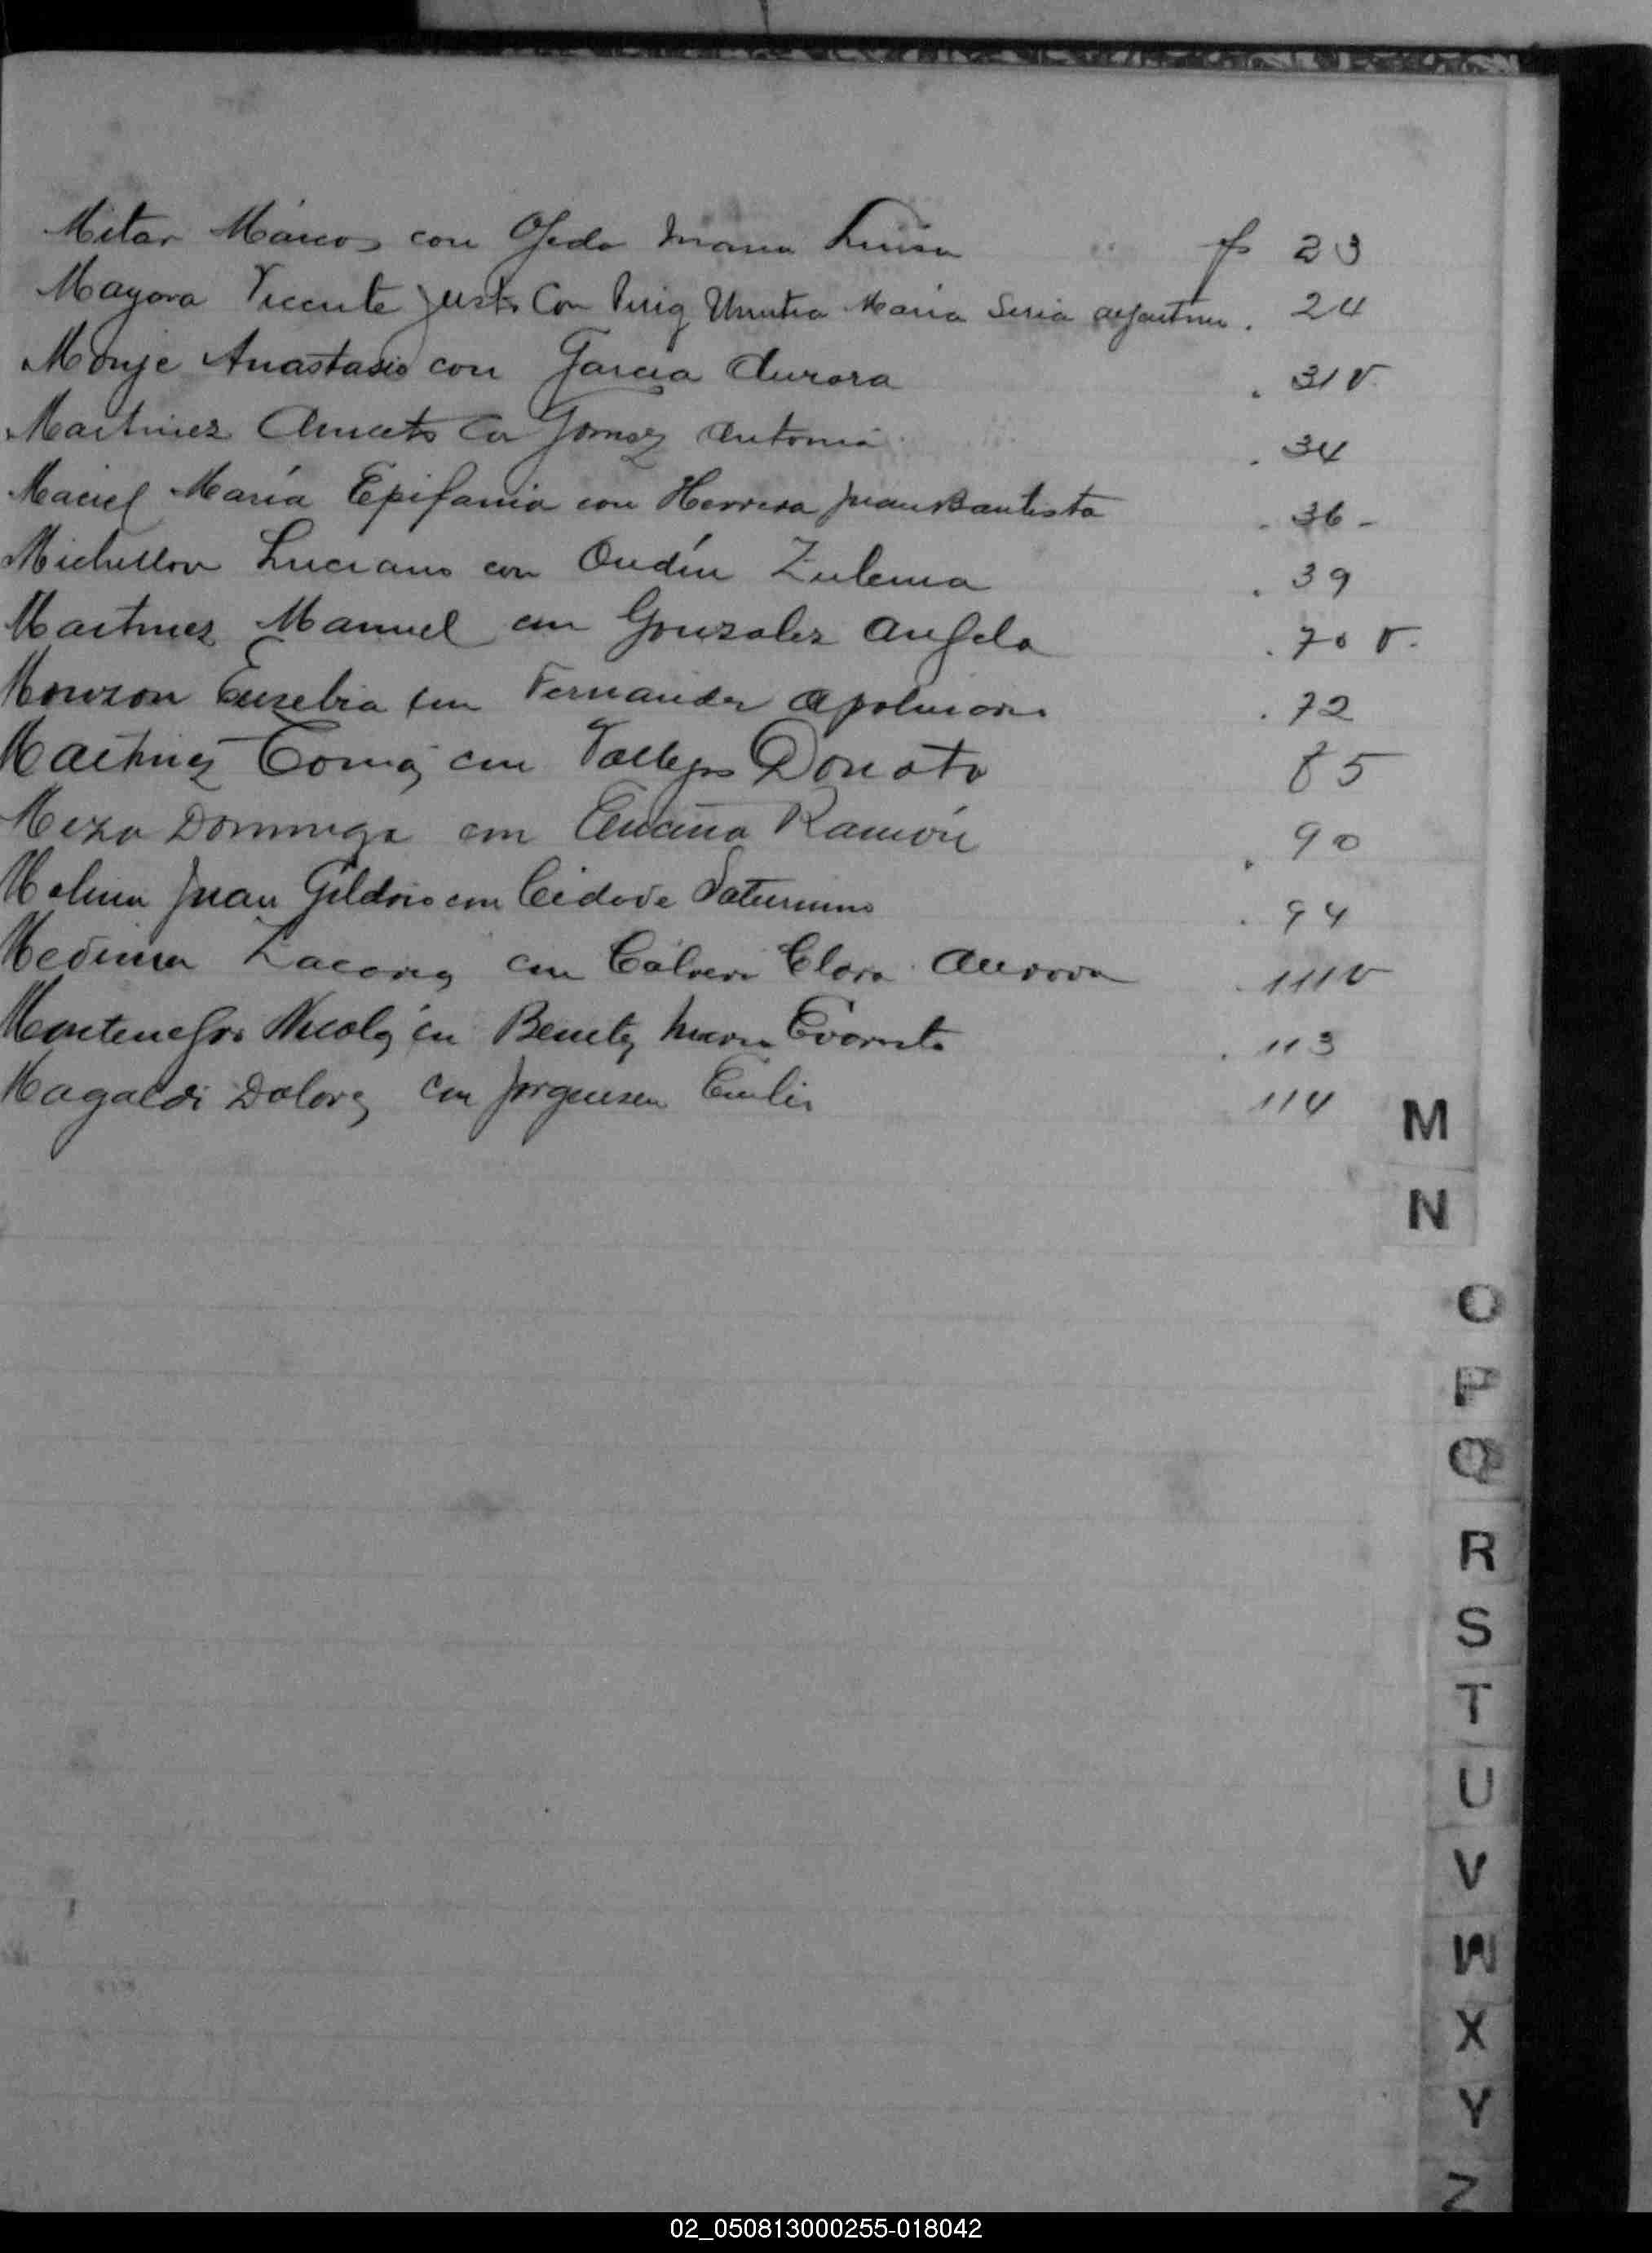 Mitar Márcos con Ojeda Maria Luisa fs 23
Mayora Vicente Justo Con Puig María . 24
Monje Anastasio con Garcia Aurora . 31 v.
Martinez Aniceto Con Gomez Antonia . 34
Maciel María Epifania con Herrera Juan Bautista . 36 -
Michellon Luciano con Oudín Zulema . 39
Martinez Manuel con Gonzalez Angela . 70 v.
Monzon Eusebia con Fernandez Apolinario . 72
Martinez Tomás con Vallejos Donata 85
Meza Dominga con Ramón . 90
Molina Juan con Saturnino . 94
Medina Zacarias con Clara Aurora . 111 v
Montenegro Nicolas con Benitez Maria Evarista . 113
Magaldi Dolores con Jorgensen Emilio 114
M
N
O
P
Q
R
S
T
U
V
W
X
Y
Z
02_050813000255-018042